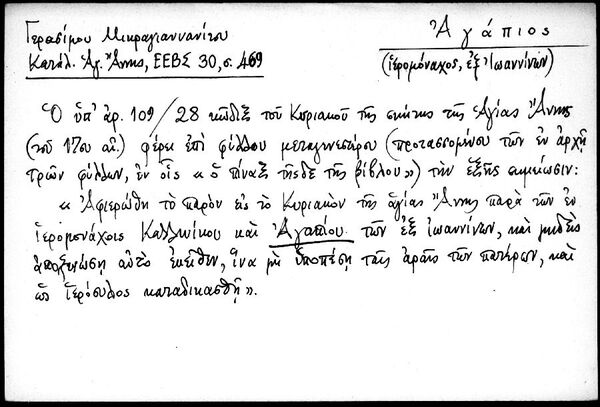 Γερασίμου Μικραγιαννανίτου
Κατάλ. Ἁγ. Ἄννης, ΕΕΒΣ 30, σ. 469
Ἀγάπιος
(ἱερομόναχος, ἐξ Ἰωαννίνων)
Ὁ ὑπ' ἀρ. 109/28 κῶδιξ τοῦ Κυριακοῦ τῆς σκήτης τῆς Ἁγίας Ἄννης
(τοῦ 17ου αἰ.) φέρει ἐπὶ φύλλου μεταγενεστέρου (προτασσομένου τῶν ἐν ἀρχῇ
τριῶν φύλλων, ἐν οἷς « ὁ πίναξ τῆσδε τῆς βίβλου ») τὴν ἑξῆς σημείωσιν:
« Ἀφιερώθη τὸ παρὸν εἰς τὸ Κυριακὸν τῆς ἁγίας Ἄννης παρὰ τῶν ἐν
ἱερομονάχοις Καλλινίκου καὶ Ἀγαπίου τῶν ἐξ Ἰωαννίνων, καὶ μηδεὶς
ἀποξενώσῃ αὐτὸ ἐκεῖθεν, ἵνα μὴ ὑποπέσῃ ταῖς ἀραῖς τῶν πατέρων, καὶ
ὡς ἱερόσυλος καταδικασθῇ ».